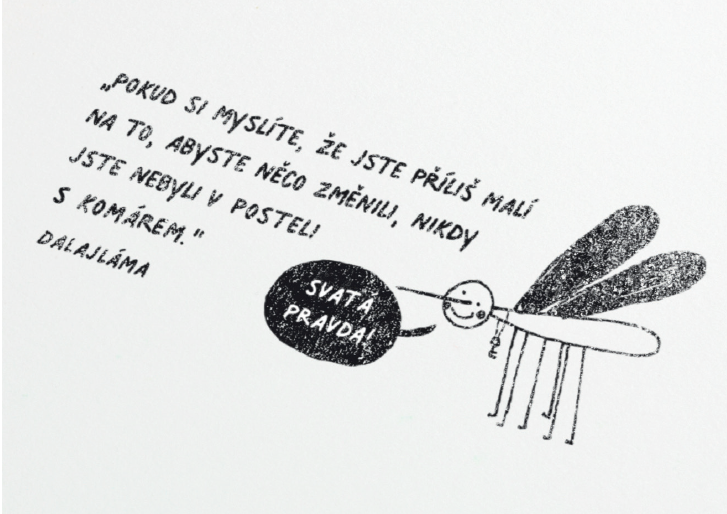 „POKUD SI MYSLÍTE, ŽE JSTE PŘÍLIŠ MALÍ
NA TO, ABYSTE NĚCO ZMĚNILI, NIKDY
JSTE NEBYLI V POSTELI
S KOMÁREM."
DALAJLÁMA
SVATÁ
PRAVDA!